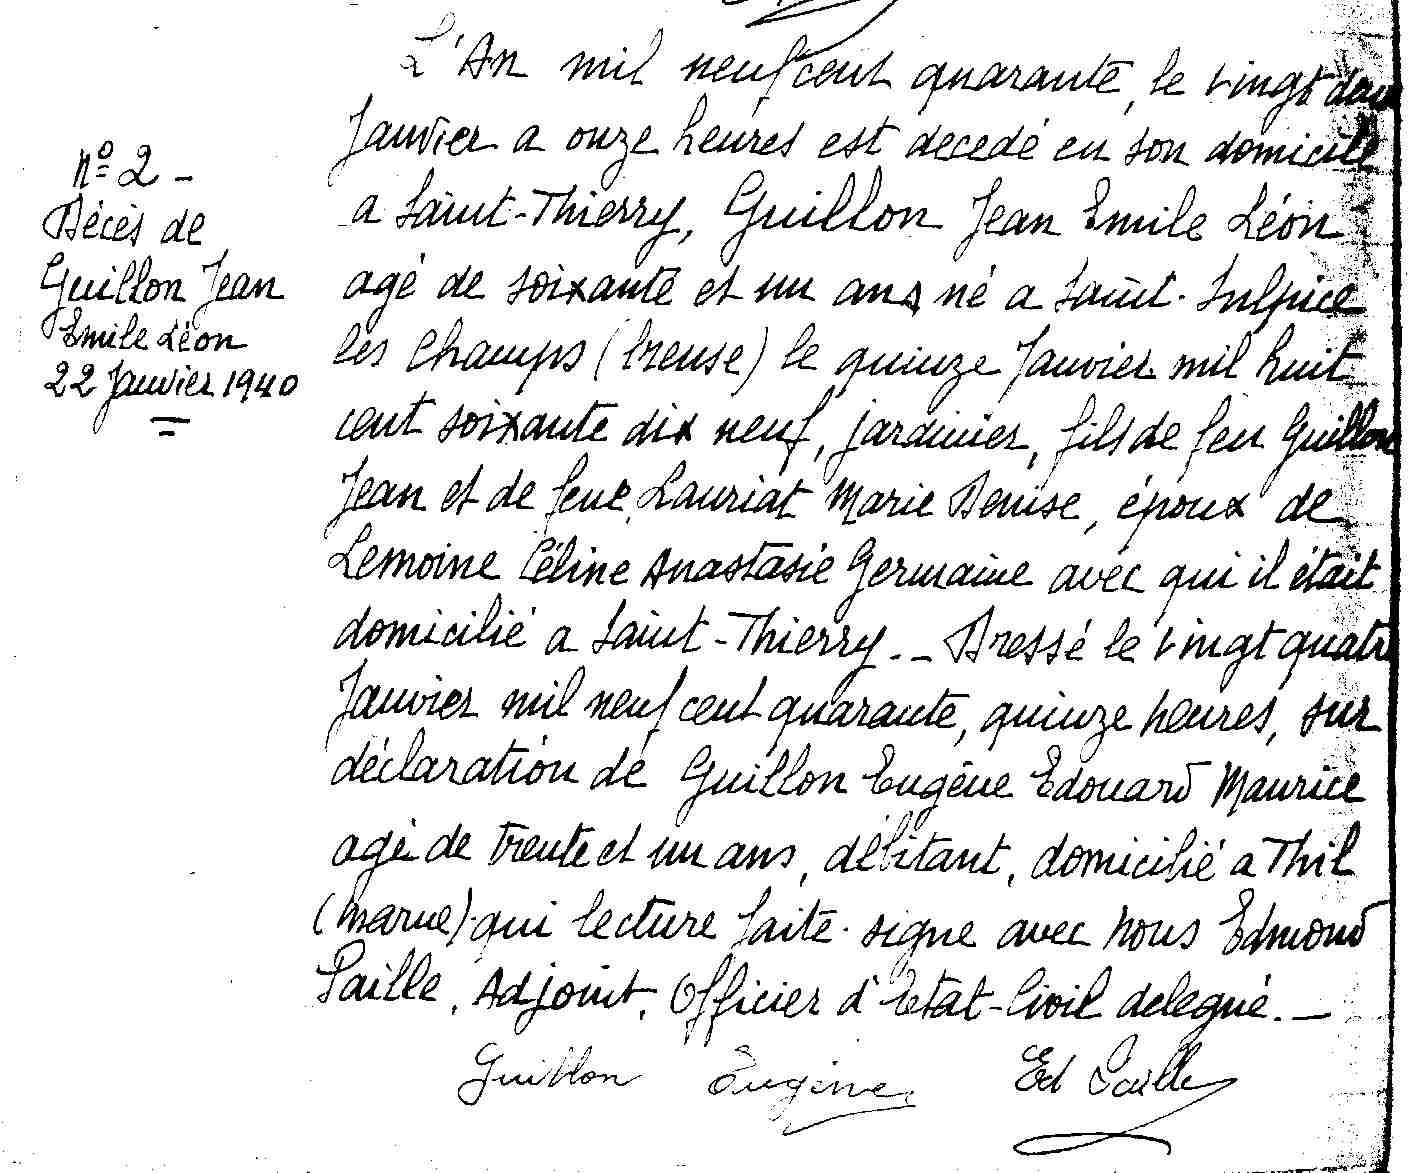 n° 2 -
Décès de
Guillon Jean
Emile Léon
22 Janvier 1940
L'An mil neuf cent quarante, le vingt deux
Janvier a onze heures est decedé en son domicile
a Saint-Thierry, Guillon Jean Emile Léon
agé de soixante et un ans né a Saint-Sulpice
les Champs (Creuse) le quinze Janvier mil huit
cent soixante dix neuf, jardinier, fils de feu Guillon
Jean et de feue Lauriat Marie Denise, époux de
Lemoine Céline Anastasie Germaine avec qui il était
domicilié a Saint-Thierry. - Dressé le vingt quatre
Janvier mil neuf cent quarante, quinze heures, sur
déclaration de Guillon Eugène Edouard Maurice
agé de trente et un ans, débitant, domicilié a Thil
(Marne) qui lecture faite signe avec nous Edmond
Paille, Adjoint, Officier d'Etat-Civil delegué. -
Guillon Eugène Ed Paille